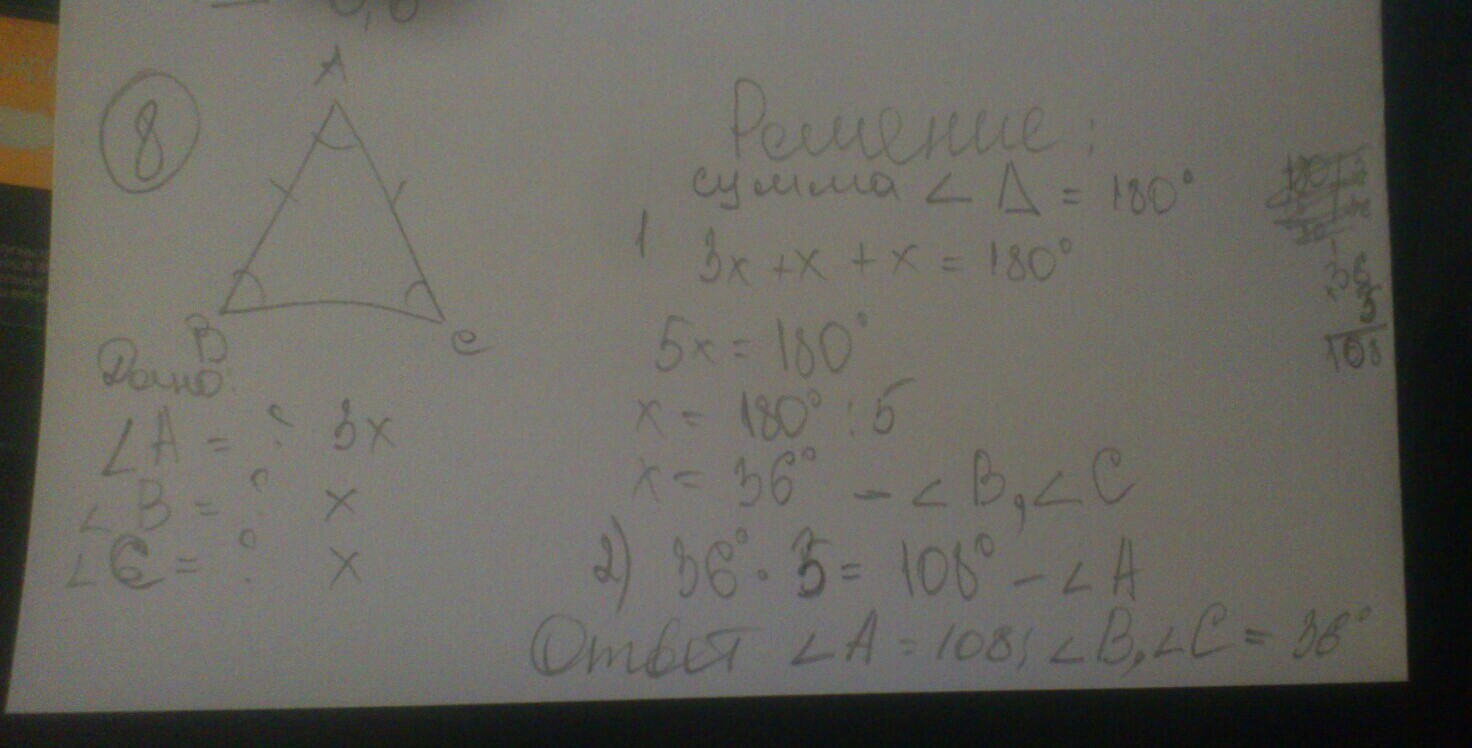 8
A
B
C
Дано:
∠A = ? 3x
∠B = ? x
∠C = ? x
Решение:
сумма ∠ Δ = 180°
1 3x + x + x = 180°
5x = 180°
x = 180° : 5
x = 36° - ∠B, ∠C
2) 36° · 3 = 108° - ∠A
Ответ ∠A = 108; ∠B, ∠C = 36°
1
36
3
108